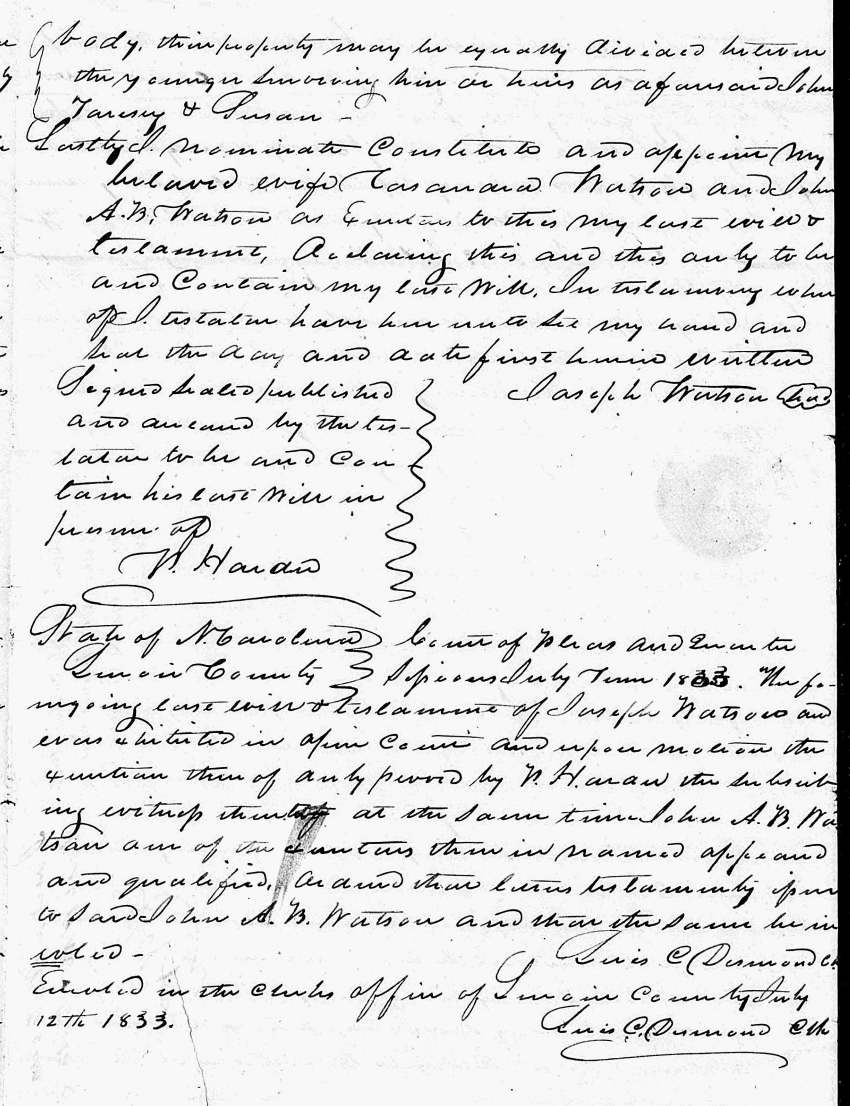 body, their property may be equally divided between
the younger surviving heir or heirs as aforesaid John
& Susan -
Lastly I. nominate Constitute and appoint my
beloved wife Casandra Watson and John
A. B. Watson as Executors to this my last will &
testament, declaring this and this only to be
and Contain my last Will, In testamony wher
of I. testator have here unto set my hand and
seal the day and date first herein written
Signed Sealed published Joseph Watson Seal
and declared by the tes-
tator to be and Con-
tain his last Will in
presence of
P. Hardee
State of N. Carolina Court of Pleas and Quarter
Lenoir County Sessions July Term 1833. The fo-
regoing last will & testament of Joseph Watson decd
was exhibited in open Court and upon motion the
execution there of duly proved by P. Hardee the subscrib
ing witness thereto at the same time John A. B. Wa
tson one of the executors there in named appeared
and qualified, ordered that letters testamentary issue
to said John A. B. Watson and that the same be in
rolled -
Lewis C Desmond Clk
Enrolled in the clerks office of Lenoir County July
12th 1833.
Lewis C. Desmond Clk